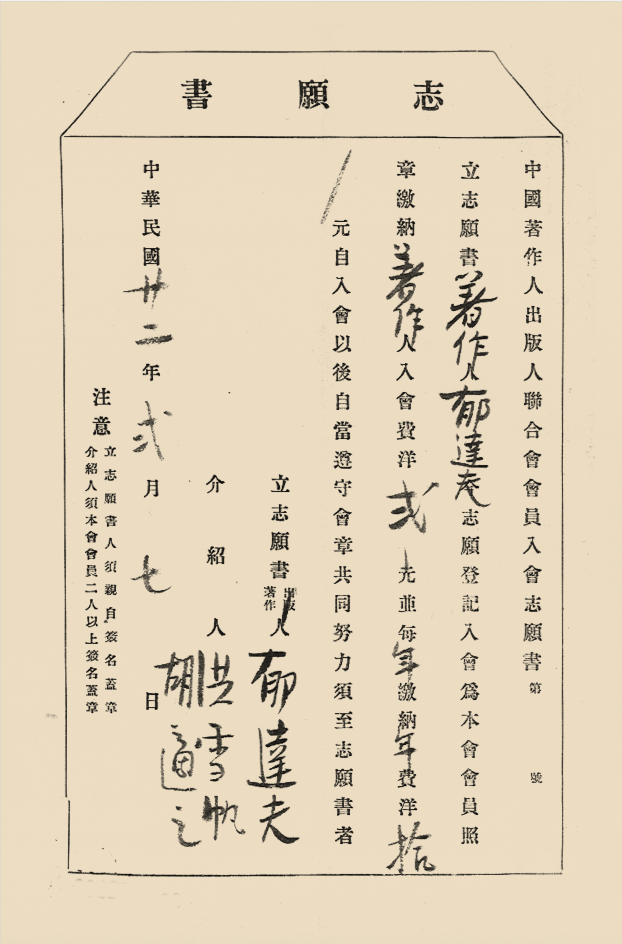 志願書
中國著作人出版人聯合會會員入會志願書 第 號
立志願書著作人郁達夫志願登記入會爲本會會員照
章繳納著作人入會費洋弍元並每年繳納年費洋拾
元自入會以後自當遵守會章共同努力須至志願書者
立志願書出版著作人郁達夫
介紹人洪雪帆
胡適之
中華民國廿二年弍月七日
注意
立志願書人須親自簽名蓋章
介紹人須本會會員二人以上簽名蓋章